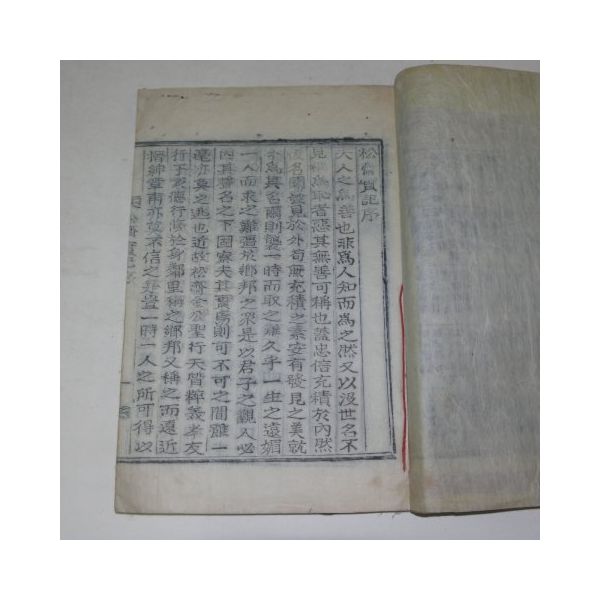 松齋實記序
大人之爲善也非爲人知而爲之然又以沒世名不
見稱爲恥者惡其無善可稱也蓋忠信充積於內然
後名聞發見於外苟無充積之素安有發見之美就
令爲其名聞則襲一時而取之難久乎一生之遠媚
一人而求之難遍於鄕邦之衆是以君子之觀人必
因其聲名之下固察夫其實焉則可不可之間難一
毫亦莫之逃也近故松齋金公聖行天資粹美孝友
行于家德行修於身鄕里稱之鄕邦又稱之而遠近
搢紳章甫亦莫不信之是豈一時一人之所可得以